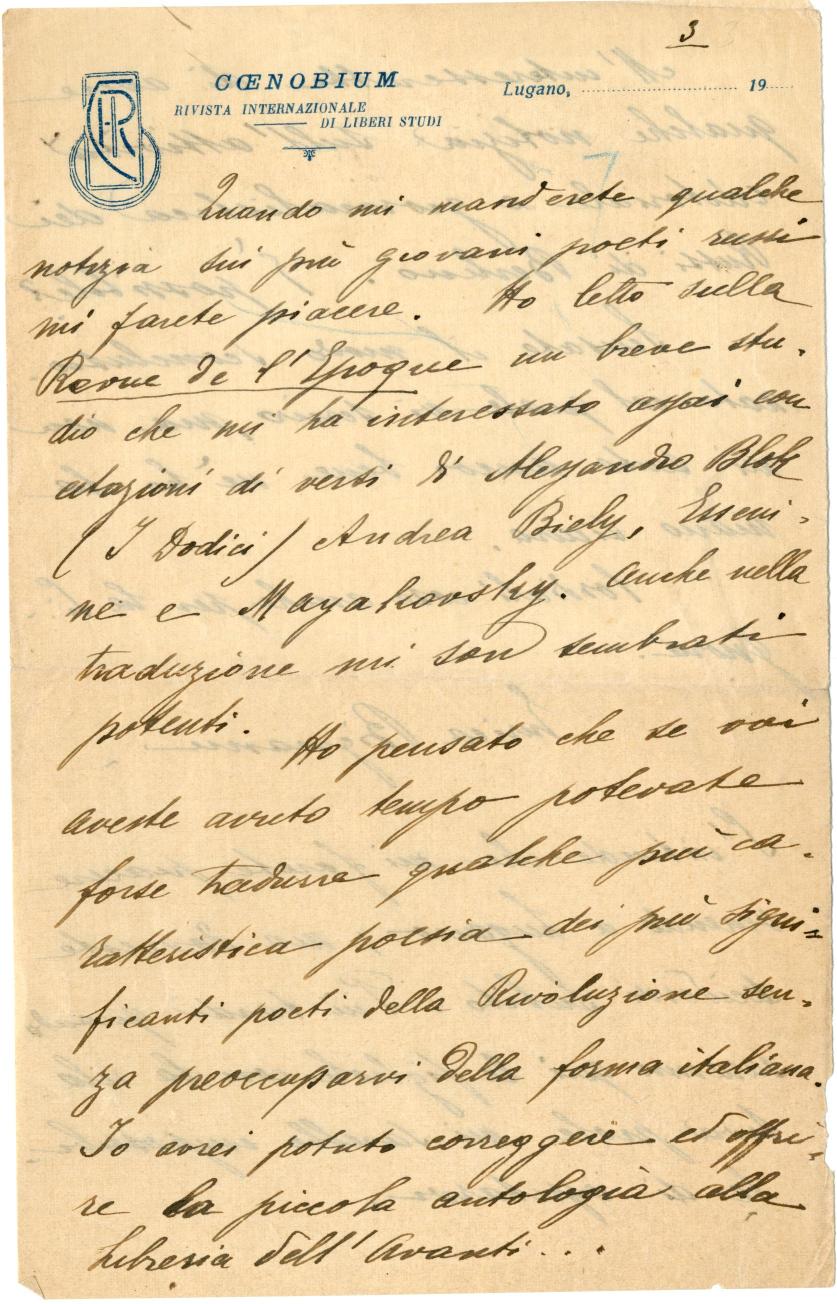 3
CŒNOBIUM
RIVISTA INTERNAZIONALE
DI LIBERI STUDI
Lugano, 19
Quando mi manderete qualche
notizia sui più giovani poeti russi
mi farete piacere. Ho letto sulla
Revue de l'Epoque un breve stu-
dio che mi ha interessato assai con
citazioni di versi di Alessandro Blok
(I Dodici) Andrea Biely, Esseni-
ne e Mayakovsky. Anche nella
traduzione mi son sembrati
potenti. Ho pensato che se voi
aveste avuto tempo potevate
forse tradurre qualche più ca-
ratteristica poesia dei più signi-
ficanti poeti della Rivoluzione sen-
za preoccuparvi della forma italiana.
Io avrei potuto correggere ed offri-
re la piccola antologia alla
libreria dell'Avanti...